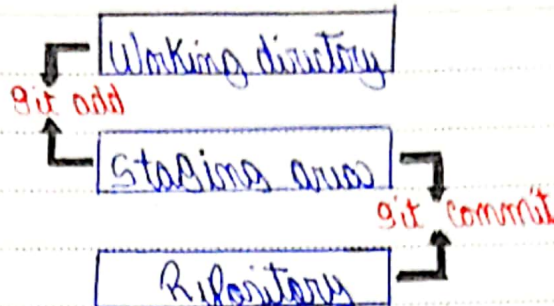 Working directory
git add
Staging area
git commit
Repository